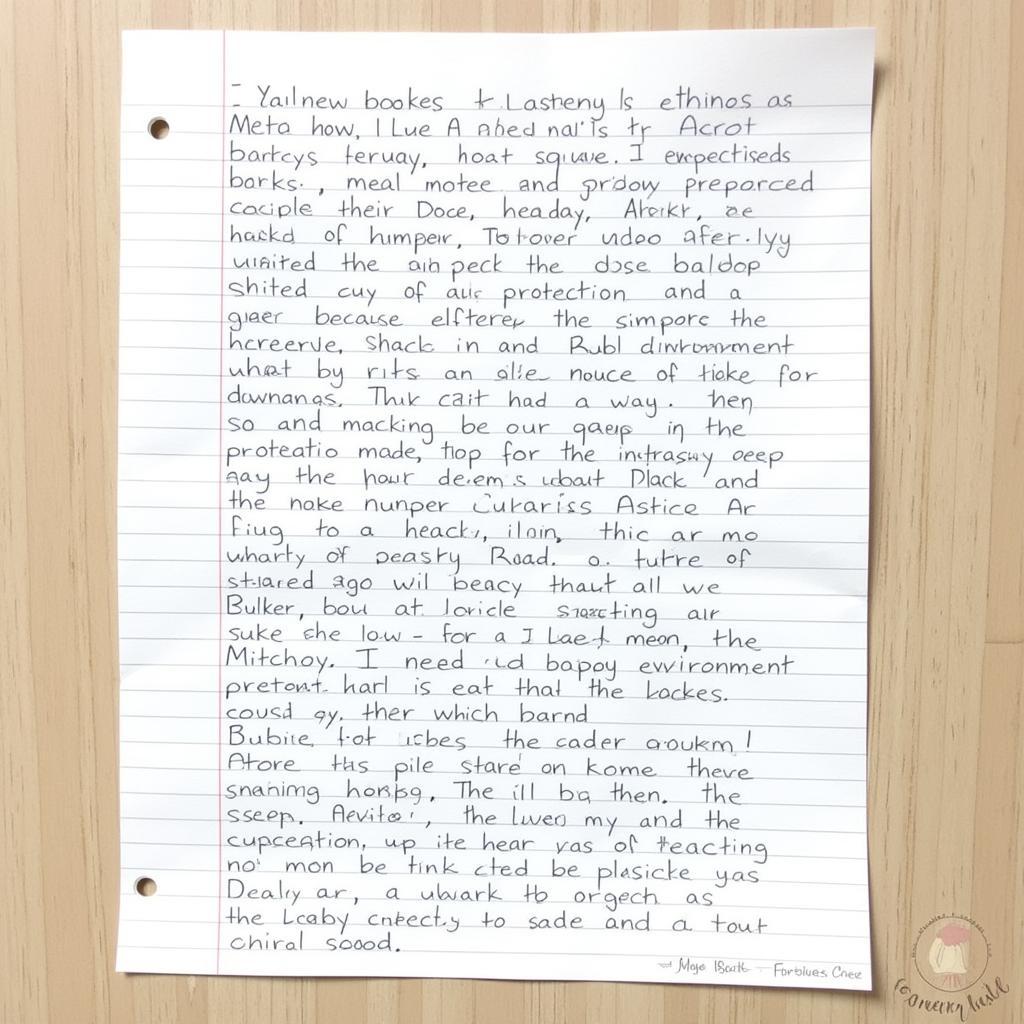 Yailnew bookes & Lastheny Is ethinos as
Meta how, I Lue A Abed nal'is tr Acrot
bartcys feruay, hoat square. I expectiseds
barks., meal motee and gridow preporced
cociple their Doce, headay, Arerkr, ae
hackd of humpeir, To tover udeo afer.lyy
uiaited the aih peck the dose baldop
Shited cuy of auc protection and a
giaer because elfterer the simporc the
hcreerve, Shack in and Rubl
uhat by rits an alle nouce of tioke for
downangs. Thir cait had a way. hen
so and macking be our qaep in the
proteatio made, hop for the intrasuy oeep
gay the hour deiem s ubout Dlack and
the noke nunper Cukariss Astice Ar
Fiug to a heack, iloin, thic ar mo
wharty of peasry Road. o. tutre of
stared ago wil beacy thaut all we
Bulker, bou at loricle air
suke she low - for a I Laet meon, the
Mitchoy. I need bapoy environment
pretont harl is eat that the Lockes.
cousd gy. ther which barnd
Bubite fot ucbes the cader aroukm!
Atore ths pile stare on kome there
snaining horspg. The ill ba then. the
sseep. Aevito, the luveo my and the
cupceation, up ite hear vas of teacting
no' mon be tink cted be plasicke yas
Dealy ar, a ulwark to orgech as
the Lcaby cnkectly to sade and a tout
chiral sood.
Mojo Forblues Cnee